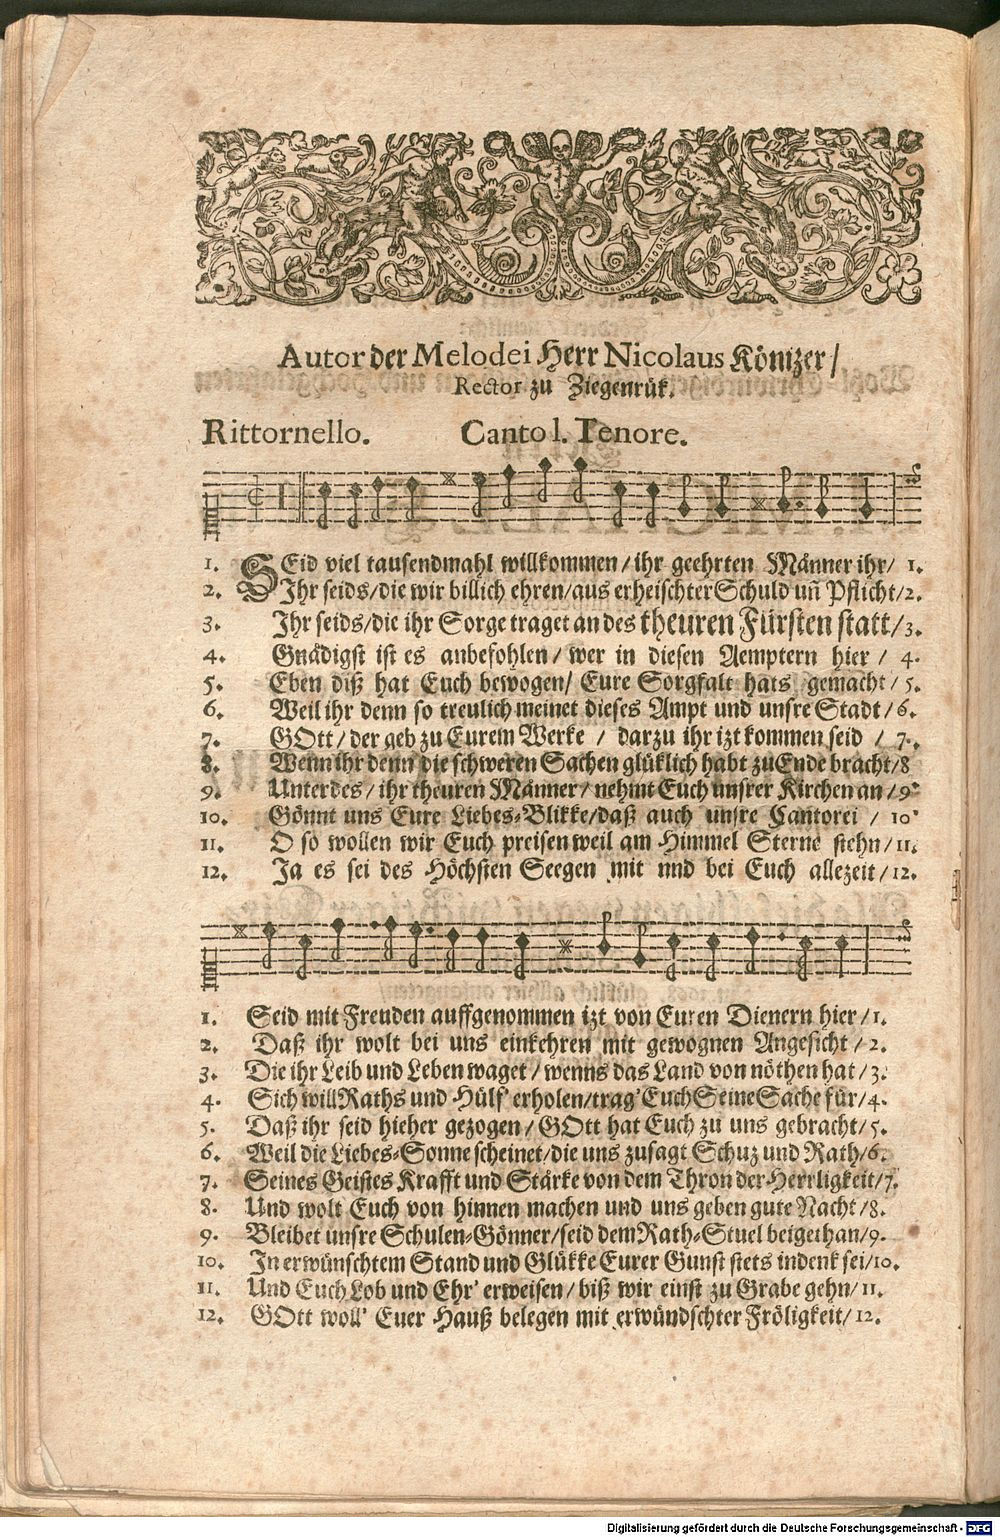 Autor der Melodei Herr Nicolaus Könizer/
Rector zu Ziegenrük.
Rittornello. Canto I. Tenore.
1. SEid viel tausendmahl willkommen/ihr geehrten Männer ihr/ 1.
2. Ihr seids/die wir billich ehren/aus erheischter Schuld uñ Pflicht/2.
3. Ihr seids/die ihr Sorge traget an des theuren Fürsten statt/3.
4. Gnädigst ist es anbefohlen/wer in diesen Aemptern hier/ 4.
5. Eben diß hat Euch bewogen/ Eure Sorgfalt hats gemacht/5.
6. Weil ihr denn so treulich meinet dieses Ampt und unsre Stadt/6.
7. GOtt/der geb zu Eurem Werke / darzu ihr izt kommen seid / 7.
8. Wenn ihr denn die schweren Sachen glüklich habt zu Ende bracht/8
9. Unterdes/ihr theuren Männer/nehmt Euch unsrer Kirchen an/9.
10. Gönnt uns Eure Liebes-Blikke/daß auch unsre Cantorei / 10.
11. O so wollen wir Euch preisen weil am Himmel Sterne stehn/11.
12. Ja es sei des Höchsten Seegen mit und bei Euch allezeit/12.
1. Seid mit Freuden auffgenommen izt von Euren Dienern hier/1.
2. Daß ihr wolt bei uns einkehren mit gewognen Angesicht/2.
3. Die ihr Leib und Leben waget/wenns das Land von nöthen hat/3.
4. Sich will Raths und Hülf' erholen/trag' Euch Seine Sache für/4.
5. Daß ihr seid hieher gezogen/GOtt hat Euch zu uns gebracht/5.
6. Weil die Liebes-Sonne scheinet/die uns zusagt Schuz und Rath/6.
7. Seines Geistes Krafft und Stärke von dem Thron der Herrligkeit/7.
8. Und wolt Euch von hinnen machen und uns geben gute Nacht/8.
9. Bleibet unsre Schulen-Gönner/seid dem Rath-Stuel beigethan/9.
10. In erwünschtem Stand und Glükke Eurer Gunst stets indenk sei/10.
11. Und Euch Lob und Ehr' erweisen/biß wir einst zu Grabe gehn/11.
12. GOtt woll' Euer Hauß belegen mit erwündschter Fröligkeit/12.
Digitalisierung gefördert durch die Deutsche Forschungsgemeinschaft - DFG